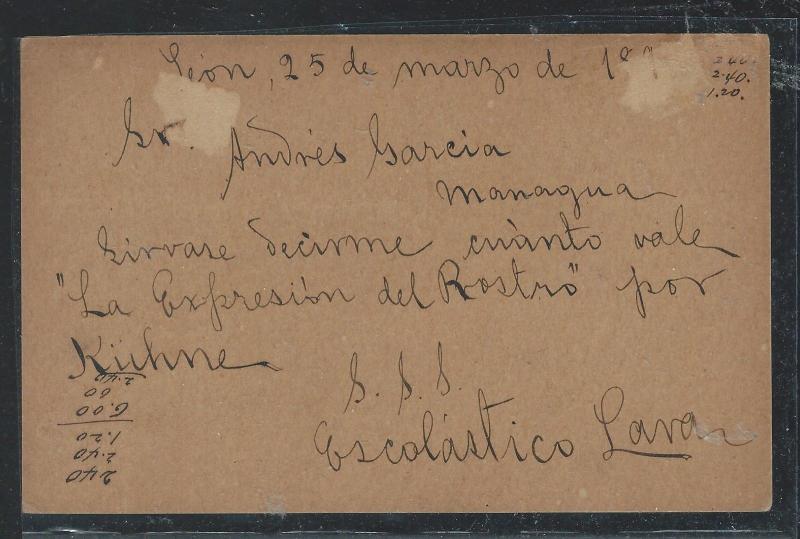 León, 25 de marzo de 19
2.40.
2.40.
1.20.
Sr. Andrés Garcia
Managua
Sirvase decirme cuánto vale
"La Expresión del Rostro" por
Kühne
S. S. S.
Escolástico Lara
2.40
2.40
1.20
6.00
60
2.40